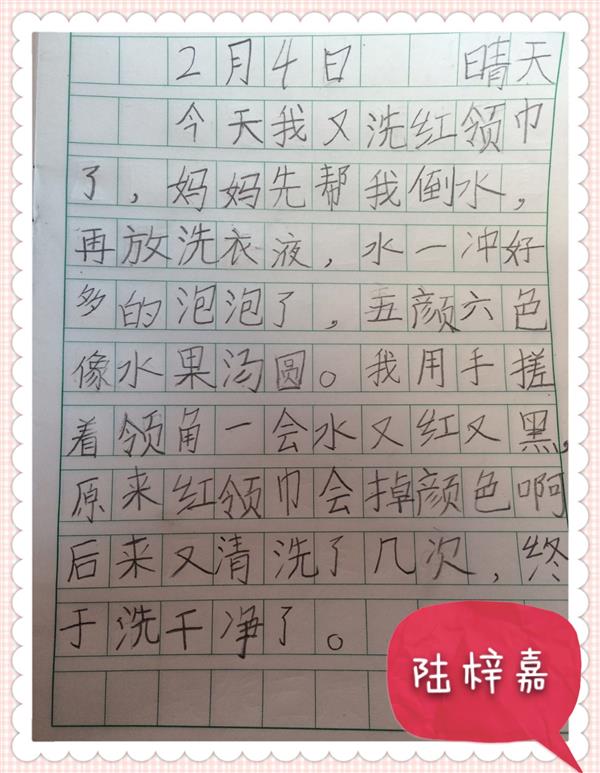 2月4日 晴天
今天我又洗红领巾
了，妈妈先帮我倒水，
再放洗衣液，水一冲好
多的泡泡了，五颜六色
像水果汤圆。我用手搓
着领角一会水又红又黑，
原来红领巾会掉颜色啊
后来又清洗了几次，终
于洗干净了。
陆梓嘉